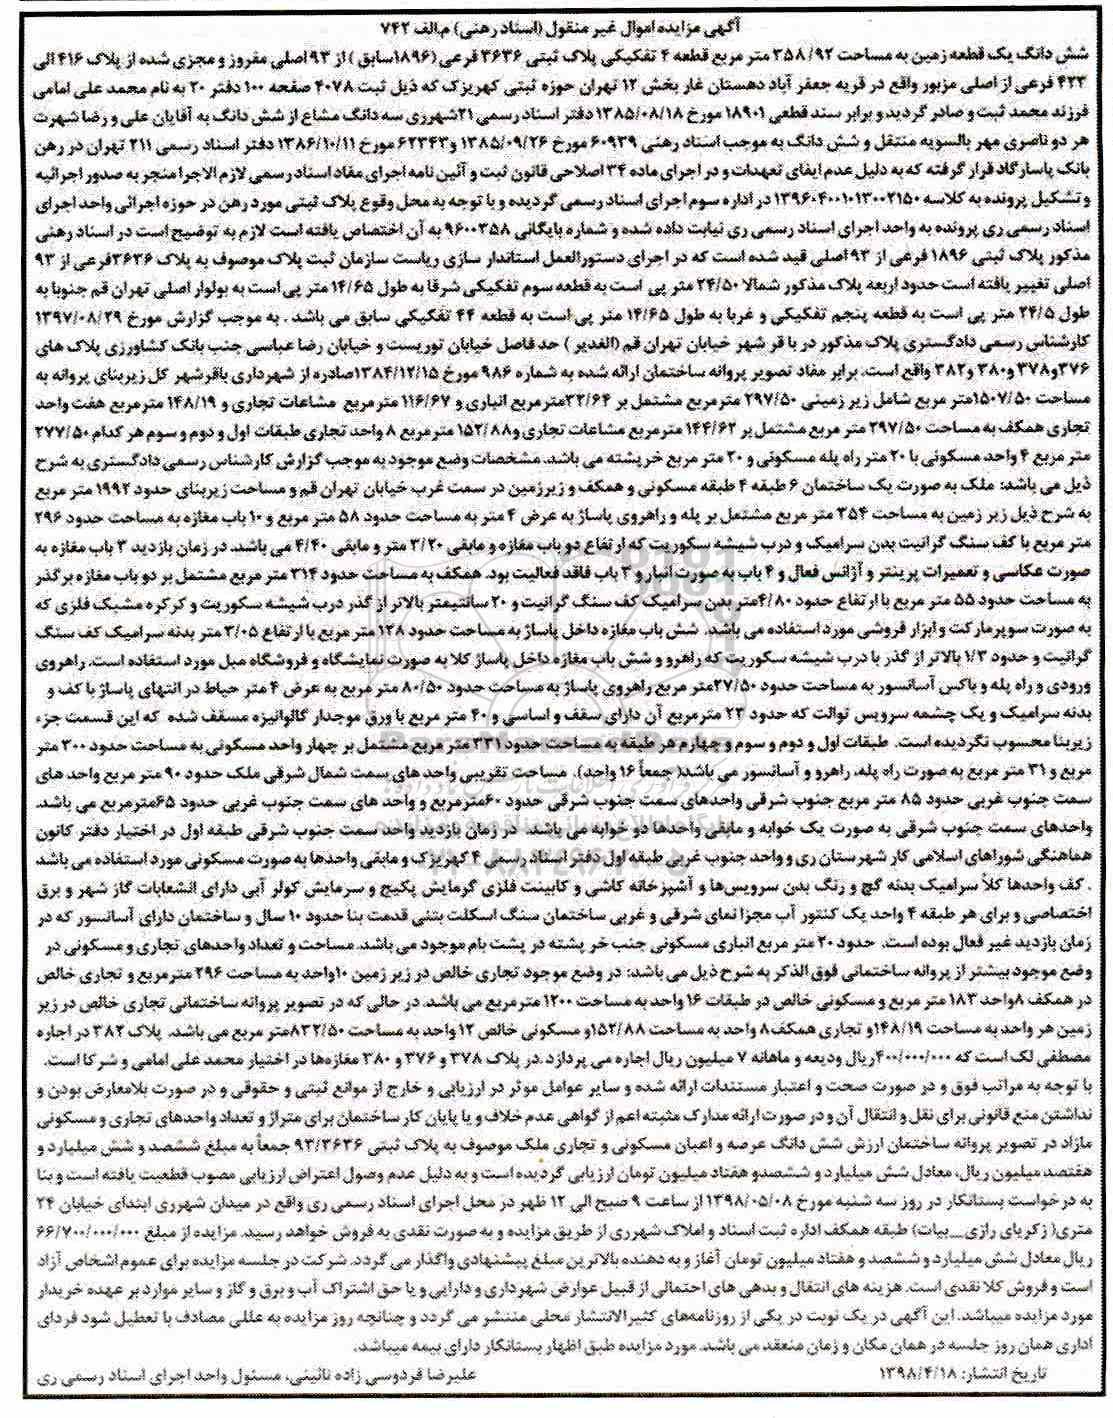 آگهی مزایده اموال غیر منقول (اسناد رهنی) م.الف ۷۴۲
شش دانگ یک قطعه زمین به مساحت ۳۵۸/۹۲ متر مربع قطعه ۴ تفکیکی پلاک ثبتی ۳۶۳۶ فرعی (۱۸۹۶سابق) از ۹۳ اصلی مفروز و مجزی شده از پلاک ۴۱۶ الی
۴۲۳ فرعی از اصلی مزبور واقع در قریه جعفر آباد دهستان غار بخش ۱۲ تهران حوزه ثبتی کهریزک که ذیل ثبت ۴۰۷۸ صفحه ۱۰۰ دفتر ۲۰ به نام محمد علی امامی
فرزند محمد ثبت و صادر گردید و برابر سند قطعی ۱۸۹۰۱ مورخ ۱۳۸۵/۰۸/۱۸ دفتر اسناد رسمی ۲۱شهرری سه دانگ مشاع از شش دانگ به آقایان علی و رضا شهرت
هر دو ناصری مهر بالسویه منتقل و شش دانگ به موجب اسناد رهنی ۶۰۹۳۹ مورخ ۱۳۸۵/۰۹/۲۶ و۶۲۳۴۳ مورخ ۱۳۸۶/۱۰/۱۱ دفتر اسناد رسمی ۲۱۱ تهران در رهن
بانک پاسارگاد قرار گرفته که به دلیل عدم ایفای تعهدات و در اجرای ماده ۳۴ اصلاحی قانون ثبت و آئین نامه اجرای مفاد اسناد رسمی لازم الاجرا منجر به صدور اجرائیه
و تشکیل پرونده به کلاسه ۱۳۹۶۰۴۰۰۱۰۱۳۰۰۲۱۵۰ در اداره سوم اجرای اسناد رسمی گردیده و با توجه به محل وقوع پلاک ثبتی مورد رهن در حوزه اجرائی واحد اجرای
اسناد رسمی ری پرونده به واحد اجرای اسناد رسمی ری نیابت داده شده و شماره بایگانی ۹۶۰۰۳۵۸ به آن اختصاص یافته است لازم به توضیح است در اسناد رهنی
مذکور پلاک ثبتی ۱۸۹۶ فرعی از ۹۳ اصلی قید شده است که در اجرای دستورالعمل استاندار سازی ریاست سازمان ثبت پلاک موصوف به پلاک ۳۶۳۶فرعی از ۹۳
اصلی تغییر یافته است حدود اربعه پلاک مذکور شمالا ۲۴/۵۰ متر پی است به قطعه سوم تفکیکی شرقا به طول ۱۴/۶۵ متر پی است به بولوار اصلی تهران قم جنوبا به
طول ۲۴/۵ متر پی است به قطعه پنجم تفکیکی و غربا به طول ۱۴/۶۵ متر پی است به قطعه ۴۴ تفکیکی سابق می باشد . به موجب گزارش مورخ ۱۳۹۷/۰۸/۲۹
کارشناس رسمی دادگستری پلاک مذکور در با قر شهر خیابان تهران قم (الغدیر ) حد فاصل خیابان توریست و خیابان رضا عباسی جنب بانک کشاورزی پلاک های
۳۷۶و۳۷۸ و۳۸۰ و۳۸۲ واقع است. برابر مفاد تصویر پروانه ساختمان ارائه شده به شماره ۹۸۶ مورخ ۱۳۸۴/۱۲/۱۵صادره از شهرداری باقرشهر کل زیربنای پروانه به
مساحت ۱۵۰۷/۵۰متر مربع شامل زیر زمینی ۲۹۷/۵۰ مترمربع مشتمل بر ۲۲/۶۴مترمربع انباری و ۱۱۶/۶۷ مترمربع مشاعات تجاری و ۱۴۸/۱۹ مترمربع هفت واحد
تجاری همکف به مساحت ۲۹۷/۵۰ متر مربع مشتمل بر ۱۴۴/۶۲ مترمربع مشاعات تجاری و۱۵۲/۸۸ مترمربع ۸ واحد تجاری طبقات اول و دوم و سوم هر کدام ۲۷۷/۵۰
متر مربع ۴ واحد مسکونی با ۲۰ متر راه پله مسکونی و ۲۰ متر مربع خرپشته می باشد. مشخصات وضع موجود به موجب گزارش کارشناس رسمی دادگستری به شرح
ذیل می باشد: ملک به صورت یک ساختمان ۶ طبقه ۴ طبقه مسکونی و همکف و زیرزمین در سمت غرب خیابان تهران قم و مساحت زیربنای حدود ۱۹۹۲ متر مربع
به شرح ذیل زیر زمین به مساحت ۳۵۴ متر مربع مشتمل بر پله و راهروی پاساژ به عرض ۴ متر به مساحت حدود ۵۸ متر مربع و ۱۰ باب مغازه به مساحت حدود ۲۹۶
متر مربع با کف سنگ گرانیت بدن سرامیک و درب شیشه سکوریت که ارتفاع دو باب مغازه و مابقی ۳/۲۰ متر و مابقی ۴/۴۰ می باشد. در زمان بازدید ۳ باب مغازه به
صورت عکاسی و تعمیرات پرینتر و آژانس فعال و ۴ باب به صورت انبار و ۳ باب فاقد فعالیت بود. همکف به مساحت حدود ۳۱۴ متر مربع مشتمل بر دو باب مغازه برگذر
به مساحت حدود ۵۵ متر مربع با ارتفاع حدود ۴/۸۰متر بدن سرامیک کف سنگ گرانیت و ۲۰ سانتیمتر بالاتر از گذر درب شیشه سکوریت و کرکره مشبک فلزی که
به صورت سوپرمارکت و ابزار فروشی مورد استفاده می باشد. شش باب مغازه داخل پاساژ به مساحت حدود ۱۲۸ متر مربع با ارتفاع ۳/۰۵ متر بدنه سرامیک کف سنگ
گرانیت و حدود ۱/۳ بالاتر از گذر با درب شیشه سکوریت که راهرو و شش باب مغازه داخل پاساژ کلا به صورت نمایشگاه و فروشگاه مبل مورد استفاده است. راهروی
ورودی و راه پله و باکس آسانسور به مساحت حدود ۲۷/۵۰متر مربع راهروی پاساژ به مساحت حدود ۸۰/۵۰ متر مربع به عرض ۴ متر حیاط در انتهای پاساژ با کف و
بدنه سرامیک و یک چشمه سرویس توالت که حدود ۲۲ مترمربع آن دارای سقف و اساسی و ۴۰ متر مربع با ورق موجدار گالوانیزه مسقف شده که این قسمت جزء
زیربنا محسوب نگردیده است. طبقات اول و دوم و سوم و چهارم هر طبقه به مساحت حدود ۳۳۱ متر مربع مشتمل بر چهار واحد مسکونی به مساحت حدود ۳۰۰ متر
مربع و ۳۱ متر مربع به صورت راه پله، راهرو و آسانسور می باشد( جمعاً ۱۶ واحد). مساحت تقریبی واحد های سمت شمال شرقی ملک حدود ۹۰ متر مربع واحد های
سمت جنوب غربی حدود ۸۵ متر مربع جنوب شرقی واحدهای سمت جنوب شرقی حدود ۶۰مترمربع و واحد های سمت جنوب غربی حدود ۶۵مترمربع می باشد.
واحدهای سمت جنوب شرقی به صورت یک خوابه و مابقی واحدها دو خوابه می باشد. در زمان بازدید واحد سمت جنوب شرقی طبقه اول در اختیار دفتر کانون
هماهنگی شوراهای اسلامی کار شهرستان ری و واحد جنوب غربی طبقه اول دفتر اسناد رسمی ۴ کهریزک و مابقی واحدها به صورت مسکونی مورد استفاده می باشد
. کف واحدها کلاً سرامیک بدنه گچ و رنگ بدن سرویس‌ها و آشپزخانه کاشی و کابینت فلزی گرمایش پکیج و سرمایش کولر آبی دارای انشعابات گاز شهر و برق
اختصاصی و برای هر طبقه ۴ واحد یک کنتور آب مجزا نمای شرقی و غربی ساختمان سنگ اسکلت بتنی قدمت بنا حدود ۱۰ سال و ساختمان دارای آسانسور که در
زمان بازدید غیر فعال بوده است. حدود ۲۰ متر مربع انباری مسکونی جنب خر پشته در پشت بام موجود می باشد. مساحت و تعداد واحدهای تجاری و مسکونی در
وضع موجود بیشتر از پروانه ساختمانی فوق الذکر به شرح ذیل می باشد: در وضع موجود تجاری خالص در زیر زمین ۱۰واحد به مساحت ۲۹۶ مترمربع و تجاری خالص
در همکف ۸واحد ۱۸۳ متر مربع و مسکونی خالص در طبقات ۱۶ واحد به مساحت ۱۲۰۰ مترمربع می باشد. در حالی که در تصویر پروانه ساختمانی تجاری خالص در زیر
زمین هر واحد به مساحت ۱۴۸/۱۹و تجاری همکف۸ واحد به مساحت ۱۵۲/۸۸و مسکونی خالص ۱۲ واحد به مساحت ۸۳۲/۵۰متر مربع می باشد. پلاک ۳۸۲ در اجاره
مصطفی لک است که ۴۰۰/۰۰۰/۰۰۰ریال ودیعه و ماهانه ۷ میلیون ریال اجاره می پردازد .در پلاک ۳۷۸ و ۳۷۶ و ۳۸۰ مغازه‌ها در اختیار محمد علی امامی و شرکا است.
با توجه به مراتب فوق و در صورت صحت و اعتبار مستندات ارائه شده و سایر عوامل موثر در ارزیابی و خارج از موانع ثبتی و حقوقی و در صورت بلامعارض بودن و
نداشتن منع قانونی برای نقل و انتقال آن و در صورت ارائه مدارک مثبته اعم از گواهی عدم خلاف و یا پایان کار ساختمان برای متراژ و تعداد واحدهای تجاری و مسکونی
مازاد در تصویر پروانه ساختمان ارزش شش دانگ عرصه و اعیان مسکونی و تجاری ملک موصوف به پلاک ثبتی ۹۳/۳۶۳۶ جمعاً به مبلغ ششصد و شش میلیارد و
هفتصد میلیون ریال، معادل شش میلیارد و ششصدو هفتاد میلیون تومان ارزیابی گردیده است و به دلیل عدم وصول اعتراض ارزیابی مصوب قطعیت یافته است و بنا
به درخواست بستانکار در روز سه شنبه مورخ ۱۳۹۸/۰۵/۰۸ از ساعت ۹ صبح الی ۱۲ ظهر در محل اجرای اسناد رسمی ری واقع در میدان شهرری ابتدای خیابان ۲۴
متری( زکریای رازی_بیات) طبقه همکف اداره ثبت اسناد و املاک شهرری از طریق مزایده و به صورت نقدی به فروش خواهد رسید. مزایده از مبلغ ۶۶/۷۰۰/۰۰۰/۰۰۰
ریال معادل شش میلیارد و ششصد و هفتاد میلیون تومان آغاز و به دهنده بالاترین مبلغ پیشنهادی واگذار می گردد. شرکت در جلسه مزایده برای عموم اشخاص آزاد
است و فروش کلا نقدی است. هزینه های انتقال و بدهی های احتمالی از قبیل عوارض شهرداری و دارایی و یا حق اشتراک آب و برق و گاز و سایر موارد بر عهده خریدار
مورد مزایده میباشد. این آگهی در یک نوبت در یکی از روزنامه‌های کثیرالانتشار محلی منتشر می گردد و چنانچه روز مزایده به عللی مصادف با تعطیل شود فردای
اداری همان روز جلسه در همان مکان و زمان منعقد می باشد. مورد مزایده طبق اظهار بستانکار دارای بیمه میباشد.
تاریخ انتشار: ۱۳۹۸/۴/۱۸
علیرضا فردوسی زاده نائینی، مسئول واحد اجرای اسناد رسمی ری